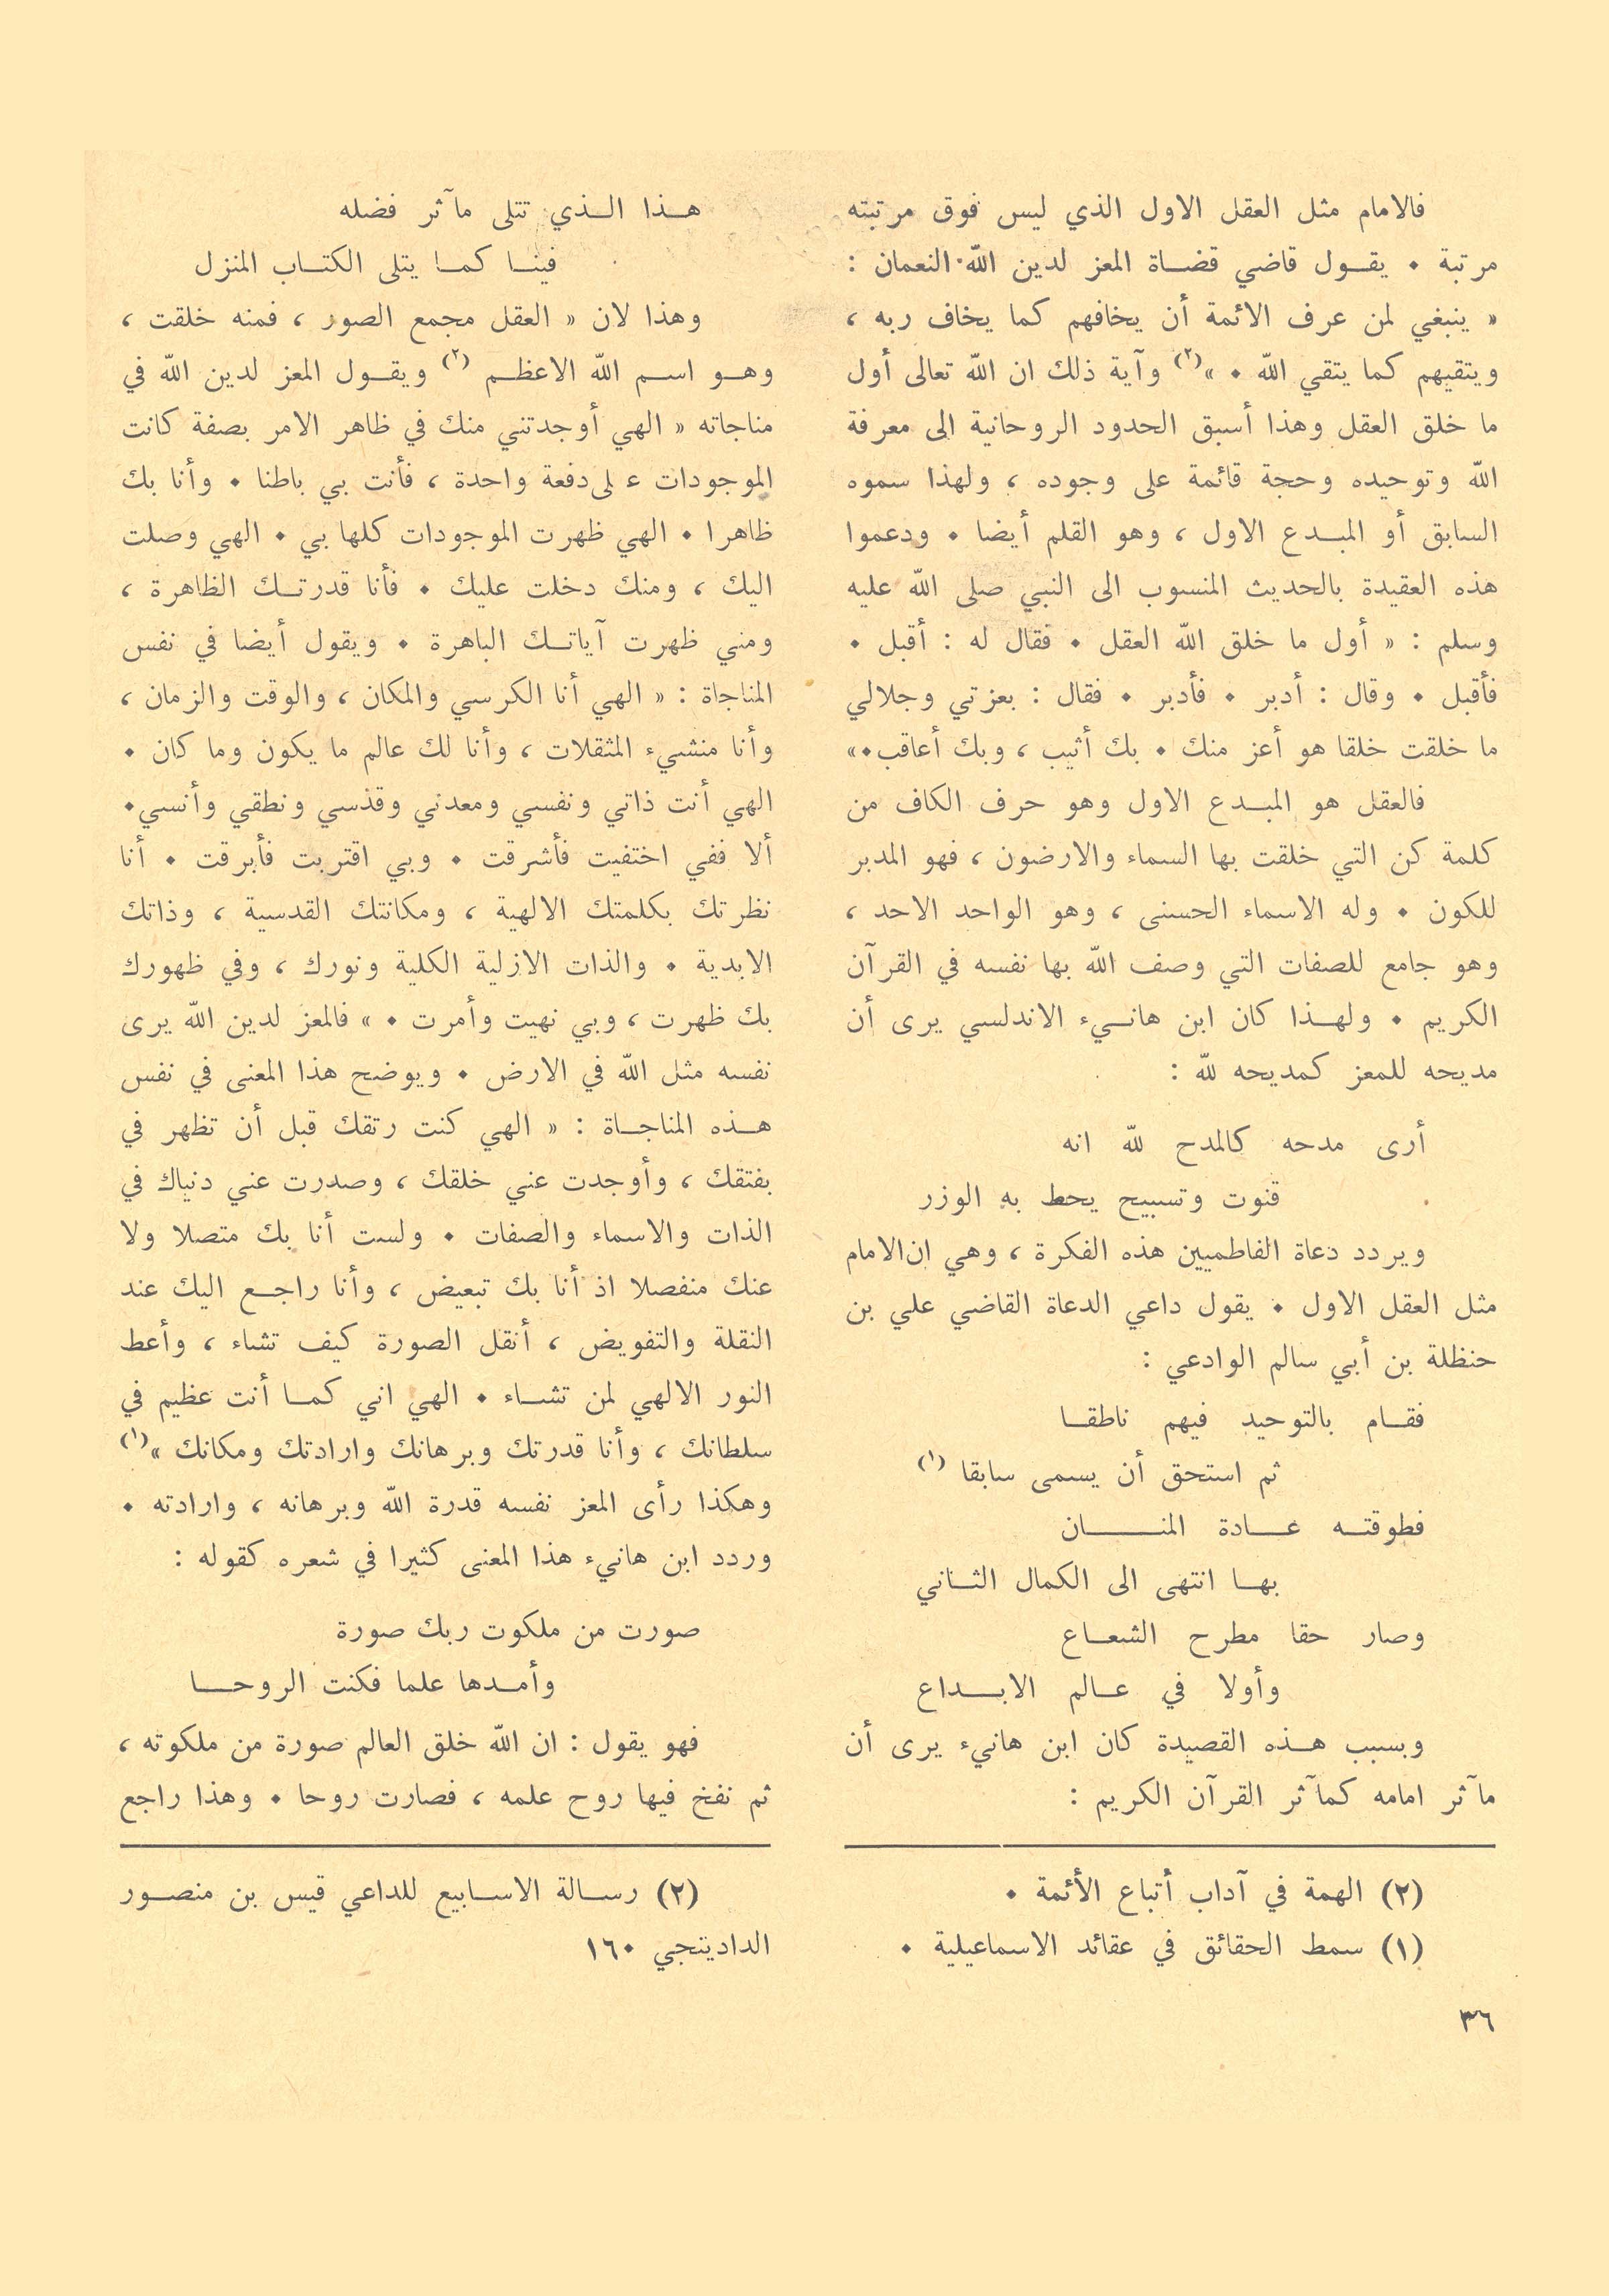 فالامام مثل العقل الاول الذي ليس فوق مرتبته
مرتبة . يقول قاضي قضاة المعز لدين الله النعمان :
« ينبغي لمن عرف الائمة أن يخافهم كما يخاف ربه ،
ويتقيهم كما يتقي الله . »(٢) وآية ذلك ان الله تعالى أول
ما خلق العقل وهذا أسبق الحدود الروحانية الى معرفة
الله وتوحيده وحجة قائمة على وجوده ، ولهذا سموه
السابق أو المبدع الاول ، وهو القلم أيضا . ودعموا
هذه العقيدة بالحديث المنسوب الى النبي صلى الله عليه
وسلم : « أول ما خلق الله العقل . فقال له : أقبل .
فأقبل . وقال : أدبر . فأدبر . فقال : بعزتي وجلالي
ما خلقت خلقا هو أعز منك . بك أثيب ، وبك أعاقب.»
فالعقل هو المبدع الاول وهو حرف الكاف من
كلمة كن التي خلقت بها السماء والارضون ، فهو المدبر
للكون . وله الاسماء الحسنى ، وهو الواحد الاحد ،
وهو جامع للصفات التي وصف الله بها نفسه في القرآن
الكريم . ولهذا كان ابن هانيء الاندلسي يرى أن
مديحه للمعز كمديحه لله :
أرى مدحه كالمدح لله انه
قنوت وتسبيح يحط به الوزر
ويردد دعاة الفاطميين هذه الفكرة ، وهي ان الامام
مثل العقل الاول . يقول داعي الدعاة القاضي علي بن
حنظلة بن أبي سالم الوادعي :
فقام بالتوحيد فيهم ناطقا
ثم استحق أن يسمى سابقا (١)
فطوقته عادة المنان
بها انتهى الى الكمال الثاني
وصار حقا مطرح الشعاع
وأولا في عالم الابداع
وبسبب هذه القصيدة كان ابن هانيء يرى أن
مآثر امامه كمآثر القرآن الكريم :
(٢) الهمة في آداب أتباع الأئمة .
(١) سمط الحقائق في عقائد الاسماعيلية .
هذا الذي تتلى مآثر فضله
فينا كما يتلى الكتاب المنزل
وهذا لان « العقل مجمع الصور ، فمنه خلقت ،
وهو اسم الله الاعظم (٢) ويقول المعز لدين الله في
مناجاته « الهي أوجدتني منك في ظاهر الامر بصفة كانت
الموجودات على دفعة واحدة ، فأنت بي باطنا . وأنا بك
ظاهرا . الهي ظهرت الموجودات كلها بي . الهي وصلت
اليك ، ومنك دخلت عليك . فأنا قدرتك الظاهرة ،
ومني ظهرت آياتك الباهرة . ويقول أيضا في نفس
المناجاة : « الهي أنا الكرسي والمكان ، والوقت والزمان ،
وأنا منشيء المثقلات ، وأنا لك عالم ما يكون وما كان .
الهي أنت ذاتي ونفسي ومعدني وقدسي ونطقي وأنسي.
ألا ففي اختفيت فأشرقت . وبي اقتربت فأبرقت . أنا
نظرتك بكلمتك الالهية ، ومكانتك القدسية ، وذاتك
الابدية . والذات الازلية الكلية ونورك ، وفي ظهورك
بك ظهرت ، وبي نهيت وأمرت . » فالمعز لدين الله يرى
نفسه مثل الله في الارض . ويوضح هذا المعنى في نفس
هذه المناجاة : « الهي كنت رتقك قبل أن تظهر في
بفتقك ، وأوجدت عني خلقك ، وصدرت عني دنياك في
الذات والاسماء والصفات . ولست أنا بك متصلا ولا
عنك منفصلا اذ أنا بك تبعيض ، وأنا راجع اليك عند
النقلة والتفويض ، أنقل الصورة كيف تشاء ، وأعط
النور الالهي لمن تشاء . الهي اني كما أنت عظيم في
سلطانك ، وأنا قدرتك وبرهانك وارادتك ومكانك »(١)
وهكذا رأى المعز نفسه قدرة الله وبرهانه ، وارادته .
وردد ابن هانيء هذا المعنى كثيرا في شعره كقوله :
صورت من ملكوت ربك صورة
وأمدها علما فكنت الروحا
فهو يقول : ان الله خلق العالم صورة من ملكوته ،
ثم نفخ فيها روح علمه ، فصارت روحا . وهذا راجع
(٢) رسالة الاسابيع للداعي قيس بن منصور
الداديتجي ١٦٠
٣٦